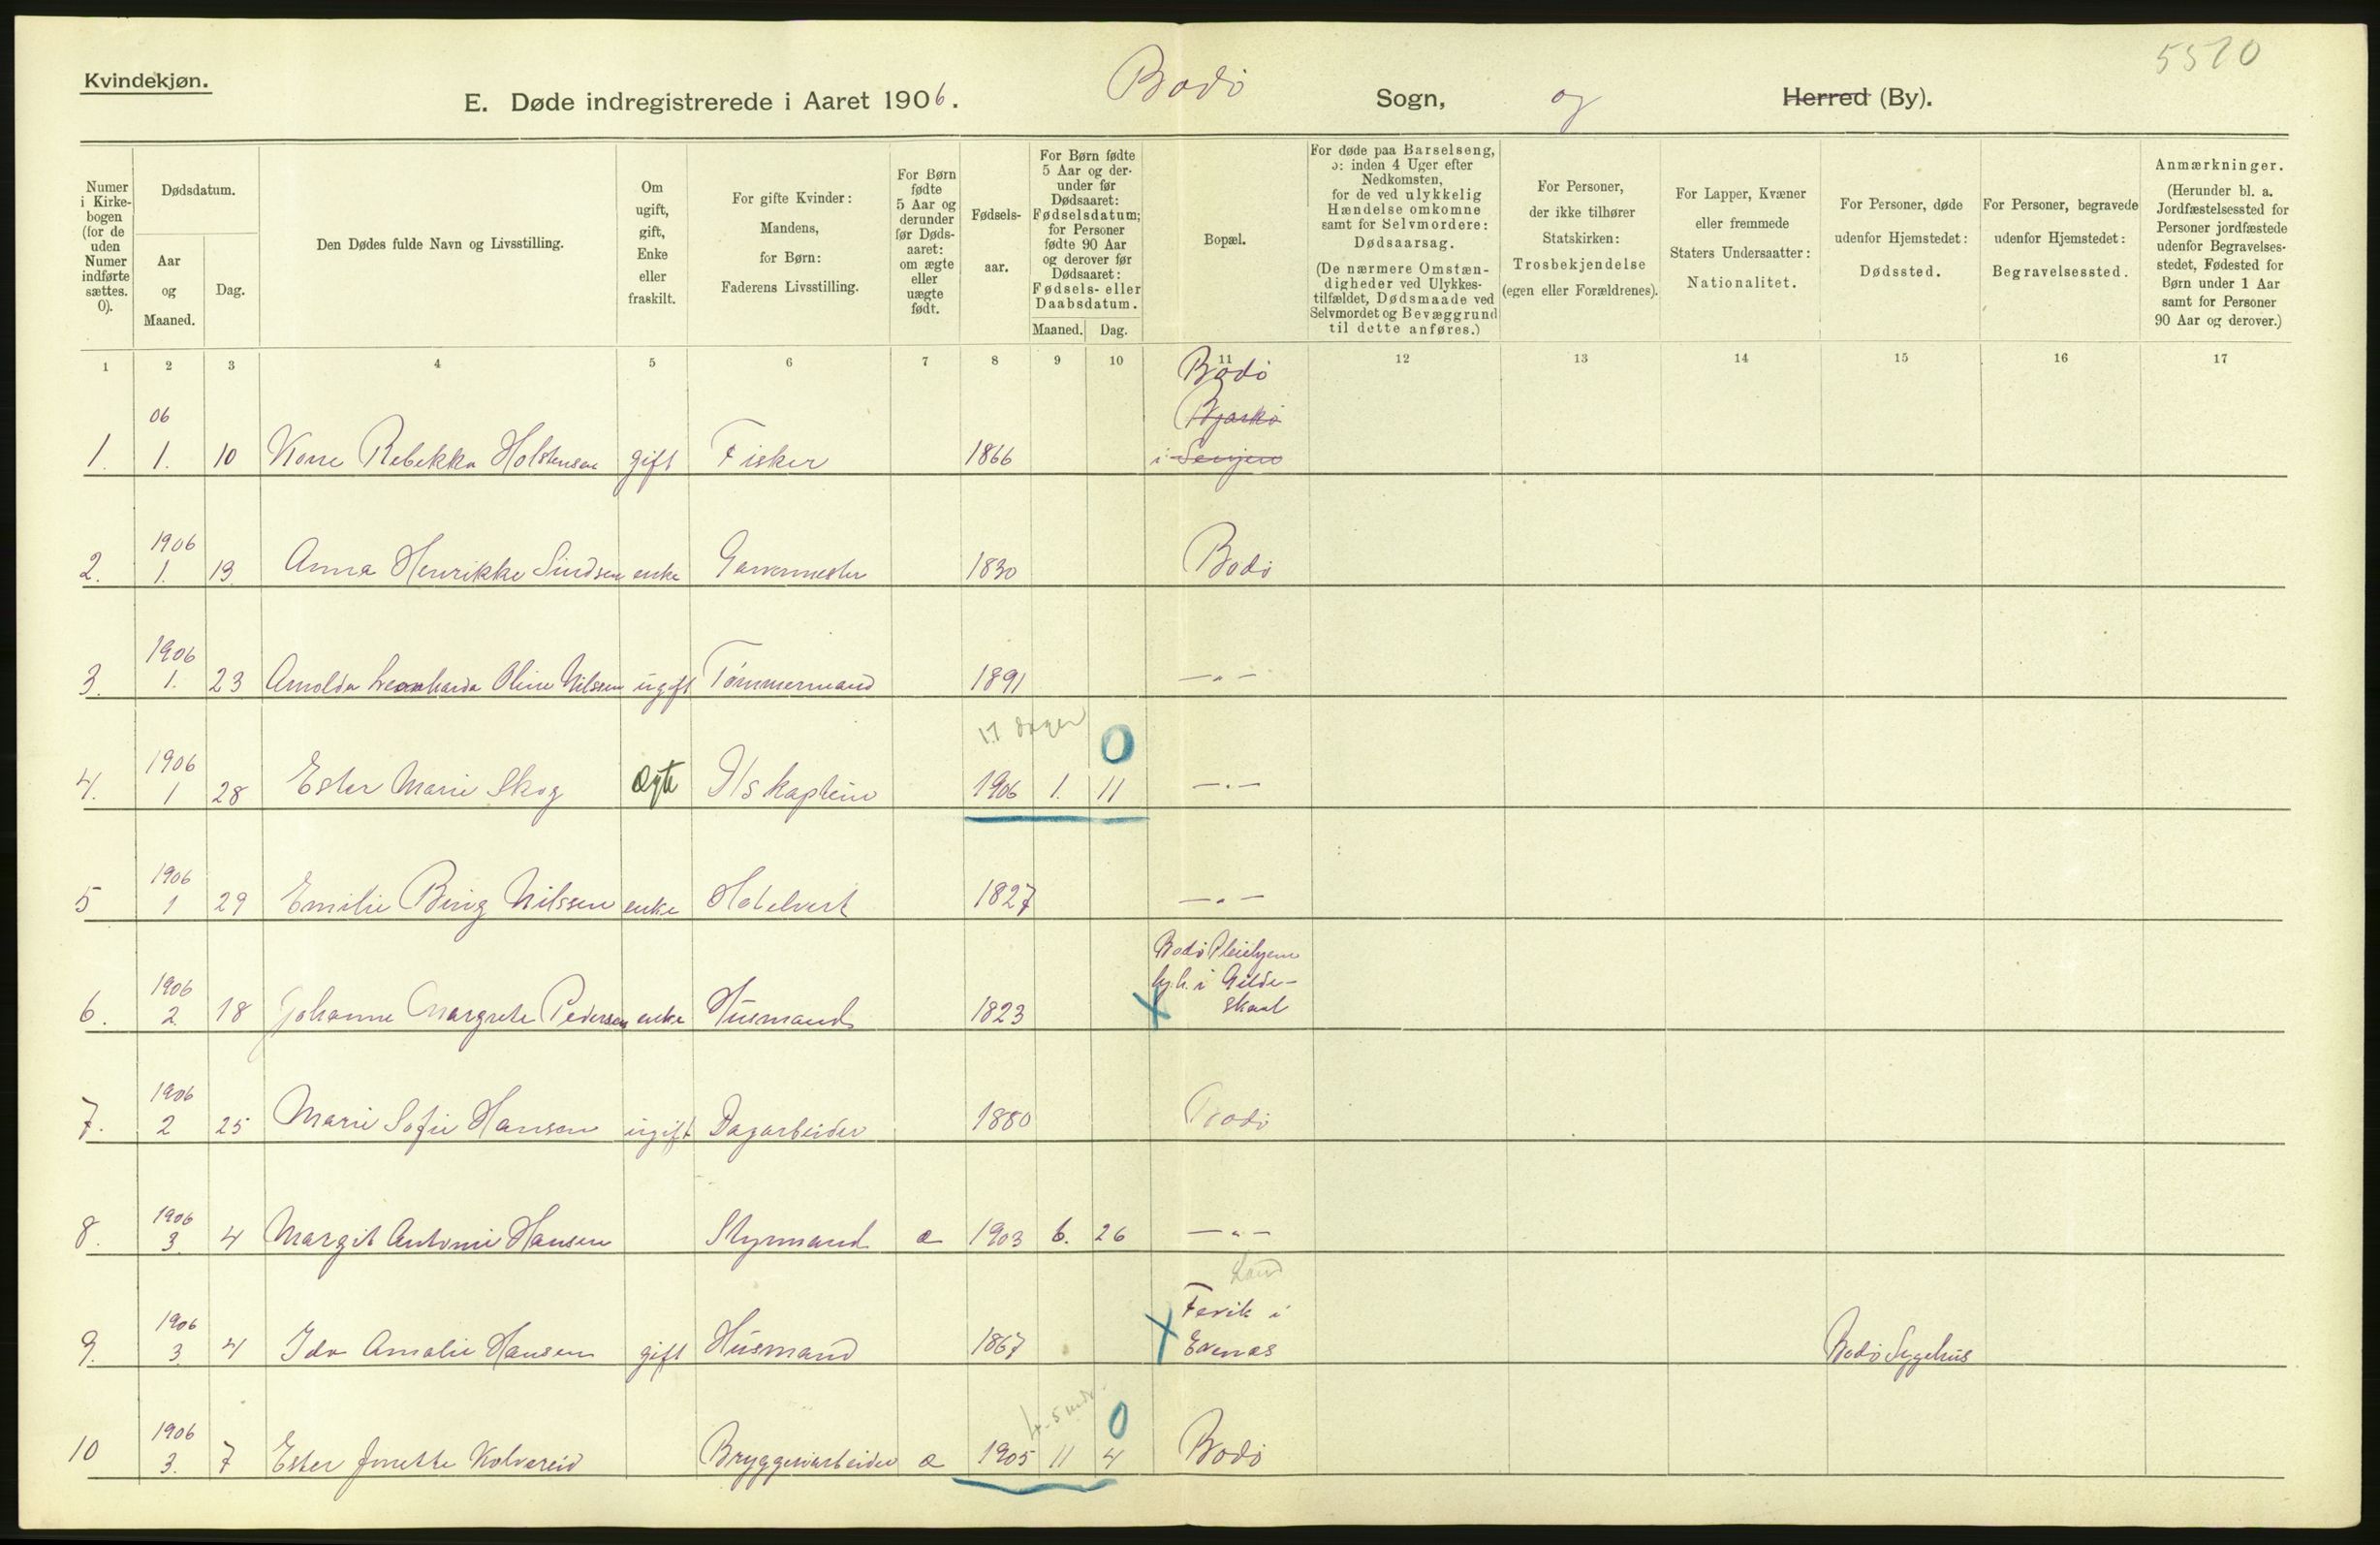 5510
Kvindekjøn.
E. Døde indregistrerede i Aaret 1906. Bodø Sogn, og Herred (By).
Numer i Kirke-bogen (for de uden Numer indførte sættes. 0).
Dødsdatum.
Aar og Maaned.
Dag.
Den Dødes fulde Navn og Livsstilling.
Om ugift, gift, Enke eller fraskilt.
For gifte Kvinder: Mandens, for Børn: Faderens Livsstilling.
For Børn fødte 5 Aar og derunder før Døds-aaret: om ægte eller uægte født.
Fødsels-aar.
For Børn fødte 5 Aar og der-under før Dødsaaret: Fødselsdatum; for Personer fødte 90 Aar og derover før Dødsaaret: Fødsels- eller Daabsdatum.
Maaned. Dag.
Bopæl.
For døde paa Barselseng, ɔ: inden 4 Uger efter Nedkomsten, for de ved ulykkelig Hændelse omkomne samt for Selvmordere: Dødsaarsag.
(De nærmere Omstæn-digheder ved Ulykkes-tilfældet, Dødsmaade ved Selvmordet og Bevæggrund til dette anføres.)
For Personer, der ikke tilhører Statskirken: Trosbekjendelse (egen eller Forældrenes).
For Lapper, Kvæner eller fremmede Staters Undersaatter: Nationalitet.
For Personer, døde udenfor Hjemstedet: Dødssted.
For Personer, begravede udenfor Hjemstedet: Begravelsessted.
Anmærkninger.
(Herunder bl. a. Jordfæstelsessted for Personer jordfæstede udenfor Begravelses-stedet, Fødested for Børn under 1 Aar samt for Personer 90 Aar og derover.)
1 2 3 4 5 6 7 8 9 10 11 12 13 14 15 16 17
Bodø
06 Bjarkø
1. 1. 10 Rebekka Holstensen gift Fisker 1866 i Senjen
1906
2. 1. 19 Anna Henrikke Sindsen enke Garvermester 1830 Bodø
1906
3. 1. 23 Arnolda Leonharda Oline Nilssen ugift Tømmermand 1891 — " —
17 dager 0
1906
4. 1 28 Ester Marie Skog Ægte D/s kaptein 1906 1. 11 — " —
1906
5 1 29 Emilie Bing Nilssen enke Hotelvert 1827 — " —
Bodø Pleiehjem
1906 hj.h. i Gilde-
6. 2. 18 Johanne Margrete Pedersen enke Husmand 1823 X skaal
1906
7. 2 25 Marie Sofie Hansen ugift Dagarbeider 1880 Bodø
1906
8. 3. 4 Margit Antonie Hansen Styrmand æ 1903 6. 26 — " —
Land
1906 Fevik i
9. 3. 4 Ida Amalie Hansen gift Husmand 1867 X Evenæs Bodø Sygehus
4-5 mdr. 0
1906
10 3. 7 Ester Jonette Kolvereid Bryggeriarbeider æ 1905 11 4 Bodø